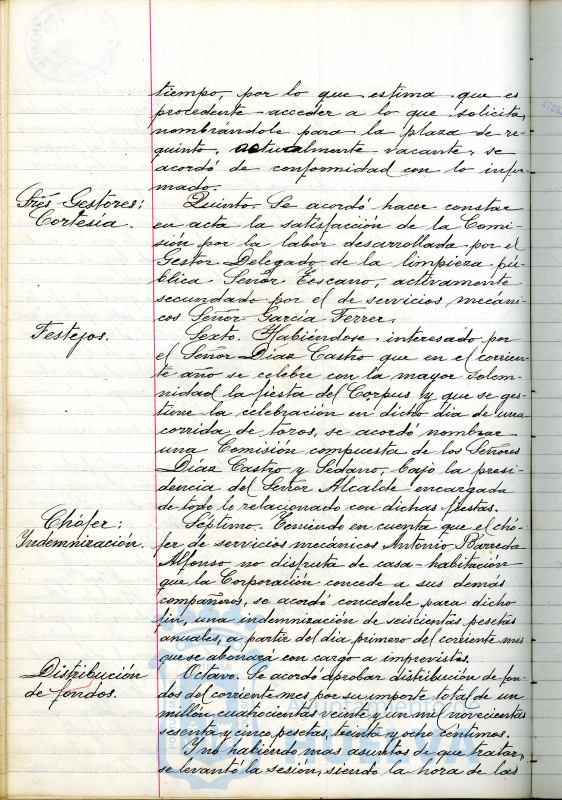 tiempo, por lo que estima que es
procedente acceder a lo que solicita,
nombrándole para la plaza de re-
quinto, actualmente vacante, se
acordó de conformidad con lo infor-
mado.
Srés Gestores:
Cortesía.
Quinto. Se acordó hacer constar
en acta la satisfacción de la Comi-
sión por la labor desarrollada por el
Gestor Delegado de la limpieza pú-
blica Señor Toscano, activamente
secundado por el de servicios mecáni-
cos Señor García Ferrer.
Festejos.
Sexto. Habiéndose interesado por
el Señor Díaz Castro que en el corrien-
te año se celebre con la mayor solem-
nidad la fiesta del Corpus y que se ges-
tione la celebración en dicho día de una
corrida de toros, se acordó nombrar
una Comisión compuesta de los Señores
Díaz Castro y Sedano, bajo la presi-
dencia del Señor Alcalde encargada
de todo lo relacionado con dichas fiestas.
Chófer:
Indemnización.
Séptimo. Teniendo en cuenta que el chó-
fer de servicios mecánicos Antonio Barreda
Alfonso no disfruta de casa-habitación
que la Corporación concede a sus demás
compañeros, se acordó concederle para dicho
fin, una indemnización de seiscientas pesetas
anuales, a partir del día primero del corriente mes
que se abonará con cargo a imprevistos.
Distribución
de fondos.
Octavo. Se acordó aprobar distribución de fon-
dos del corriente mes por su importe total de un
millón cuatrocientas veinte y un mil novecientas
sesenta y cinco pesetas, treinta y ocho céntimos.
Y no habiendo mas asuntos de que tratar,
se levantó la sesión, siendo la hora de las
Ayuntamiento de
HUELVA